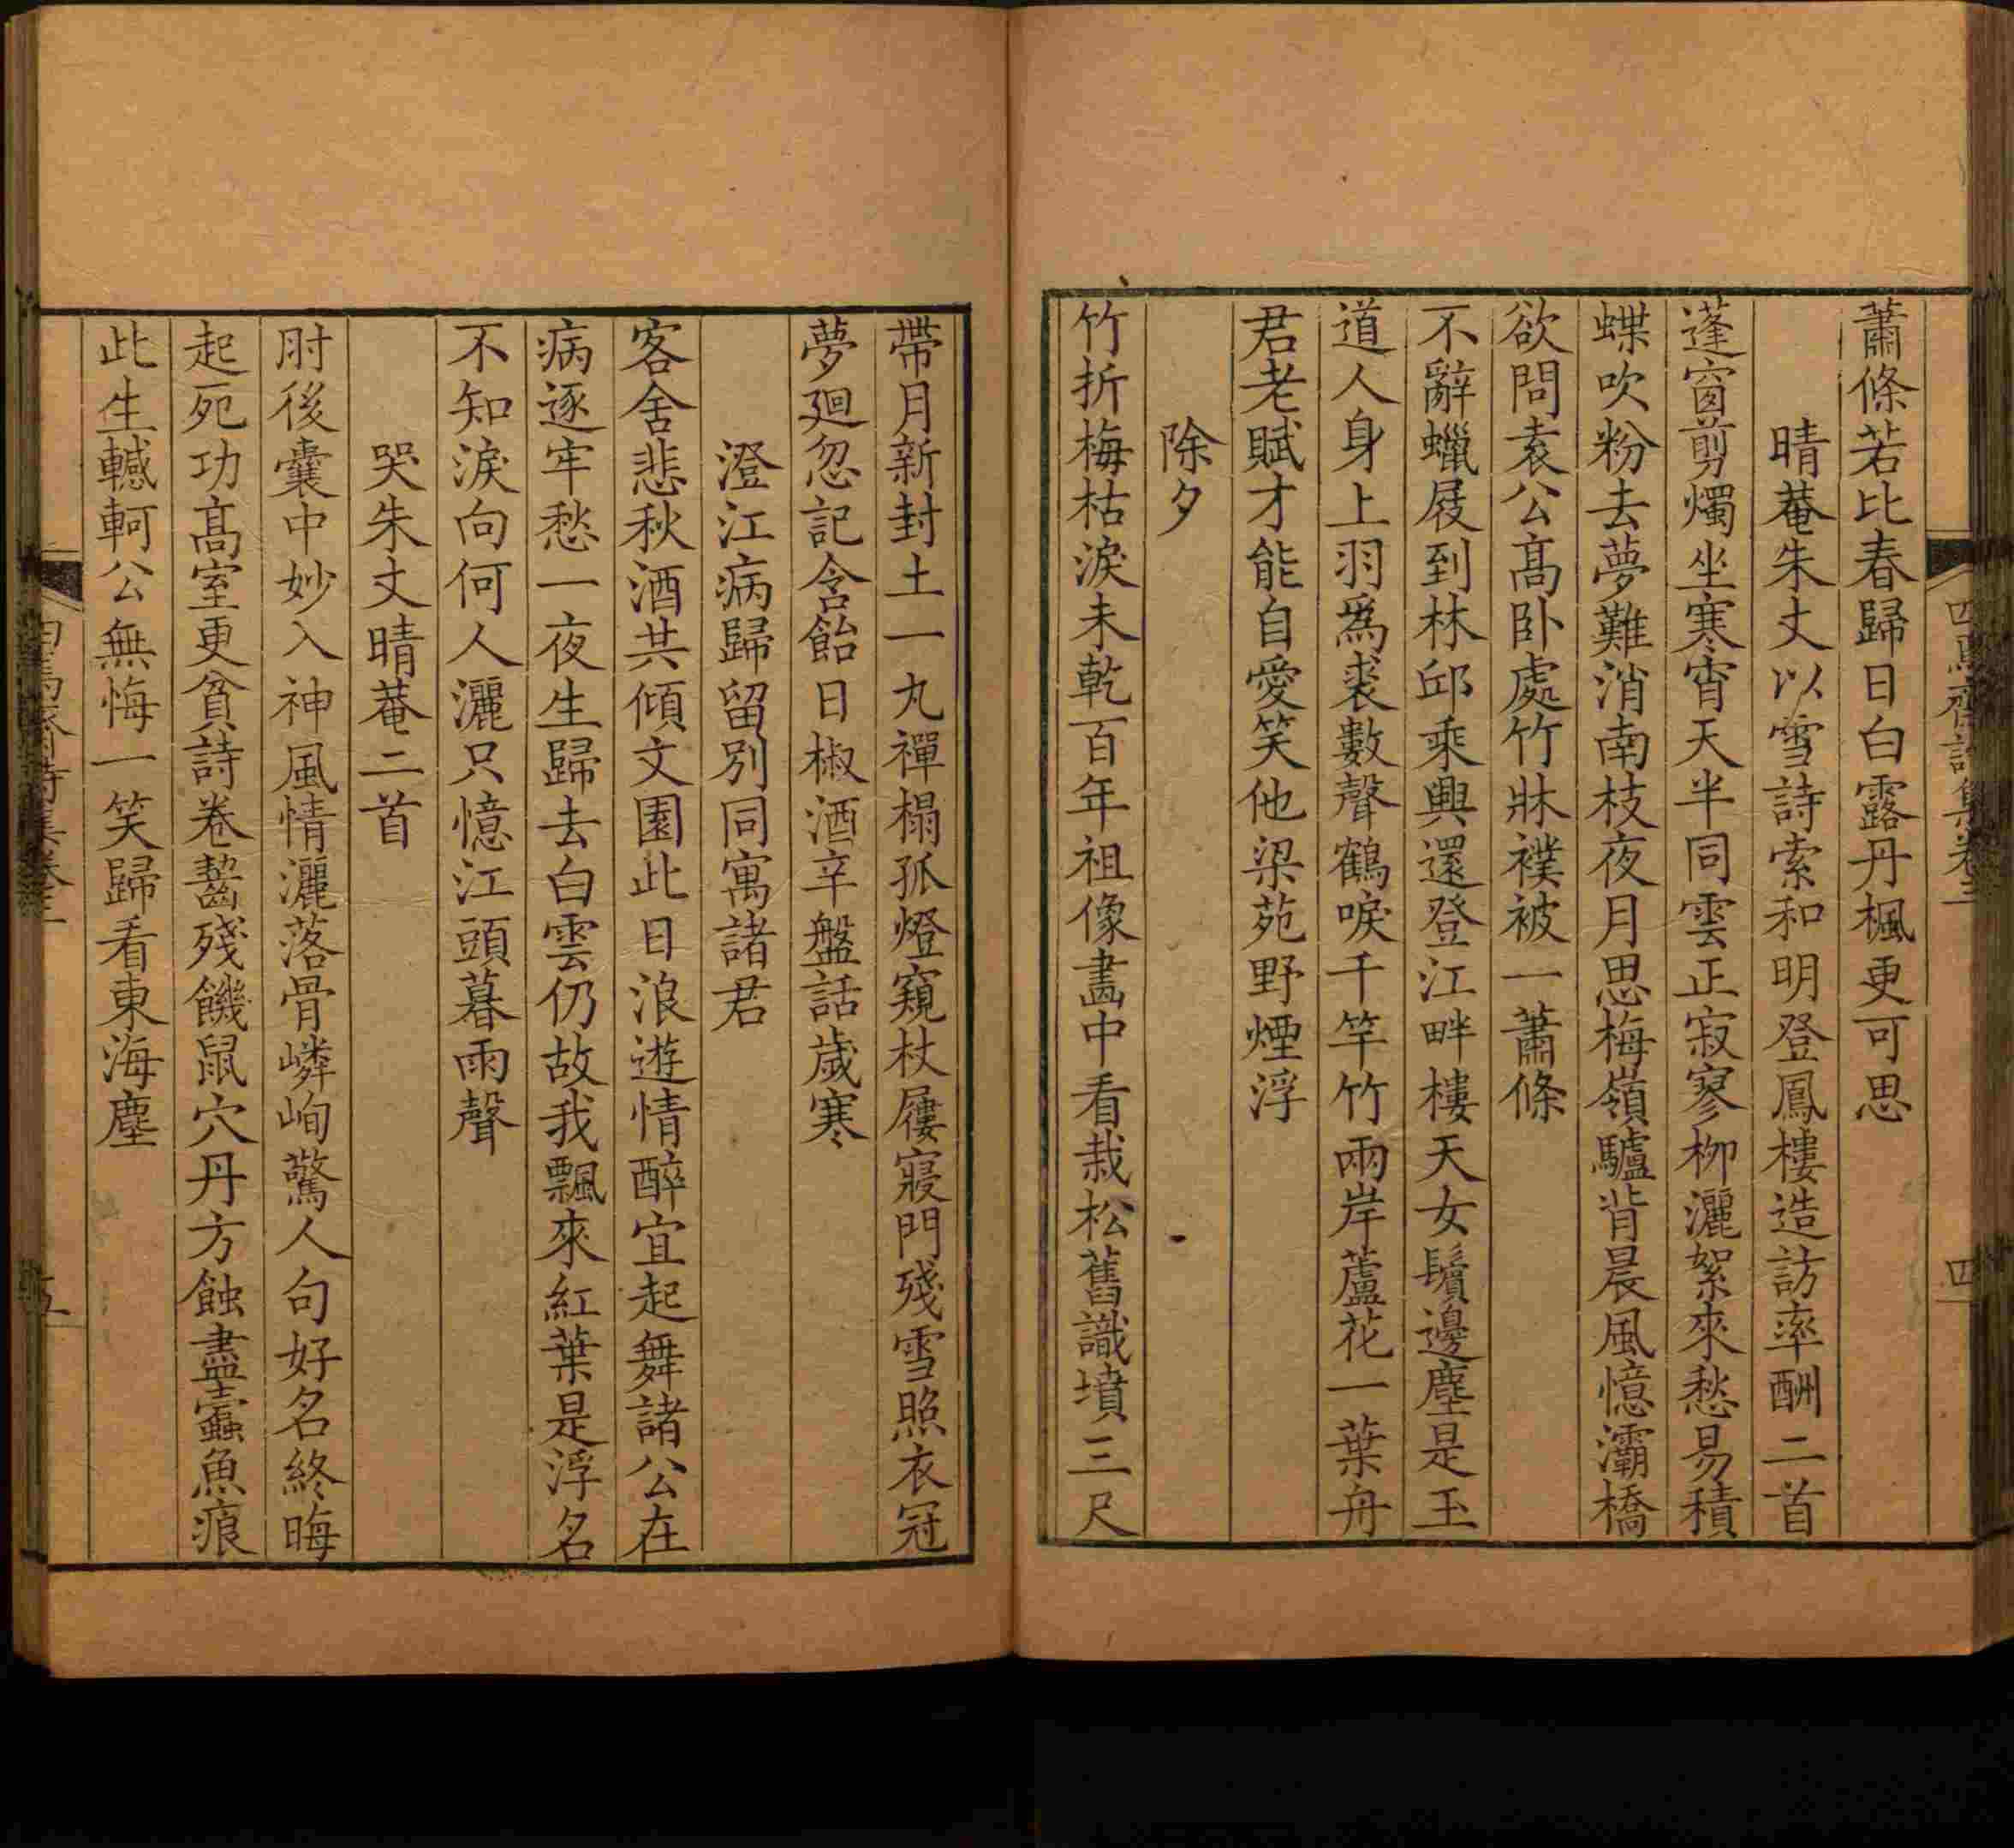 蕭條若比春歸日白露丹楓更可思
晴菴朱丈以雪詩索和明登鳳樓造訪率酬二首
蓬窗剪燭坐寒宵天半同雲正寂寥柳灑絮來愁易積
蝶吹粉去夢難消南枝夜月思梅嶺驢背晨風憶灞橋
欲問袁公髙卧處竹牀襆被一蕭條
不辭蠟屐到林邱乘興還登江畔樓天女鬢邊塵是玉
道人身上羽爲裘數聲鶴唳千竿竹兩岸蘆花一葉舟
君老賦才能自愛笑他梁苑野煙浮
除夕
竹折梅枯淚未乾百年祖像畫中看栽松舊識墳三尺
四
帶月新封土一丸禪榻孤燈窺杖屨寢門殘雪照衣冠
夢廻忽記含飴日椒酒辛盤話歲寒
澄江病歸留別同寓諸君
客舍悲秋酒共傾文園此日浪遊情醉宜起舞諸公在
病逐牢愁一夜生歸去白雲仍故我飄來紅葉是浮名
不知淚向何人灑只憶江頭暮雨聲
哭朱丈晴菴二首
肘後囊中妙入神風情灑落骨嶙峋驚人句好名終晦
起死功髙室更貧詩卷齧殘饑鼠穴丹方蝕盡蠹魚痕
此生轗軻公無悔一笑歸看東海塵
五